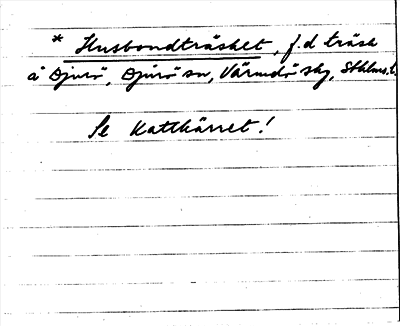 * Husbondträsket, f.d träsk
å Djurö, Djurö sn, Värmdö skg, Sthlms l.
Se Kattkärret!